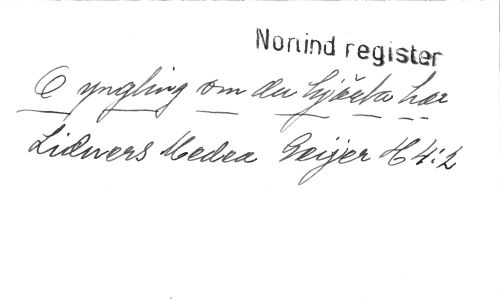 Norlind register
O yngling om du hjärta har
Lidners Medea Geijer H 4:2